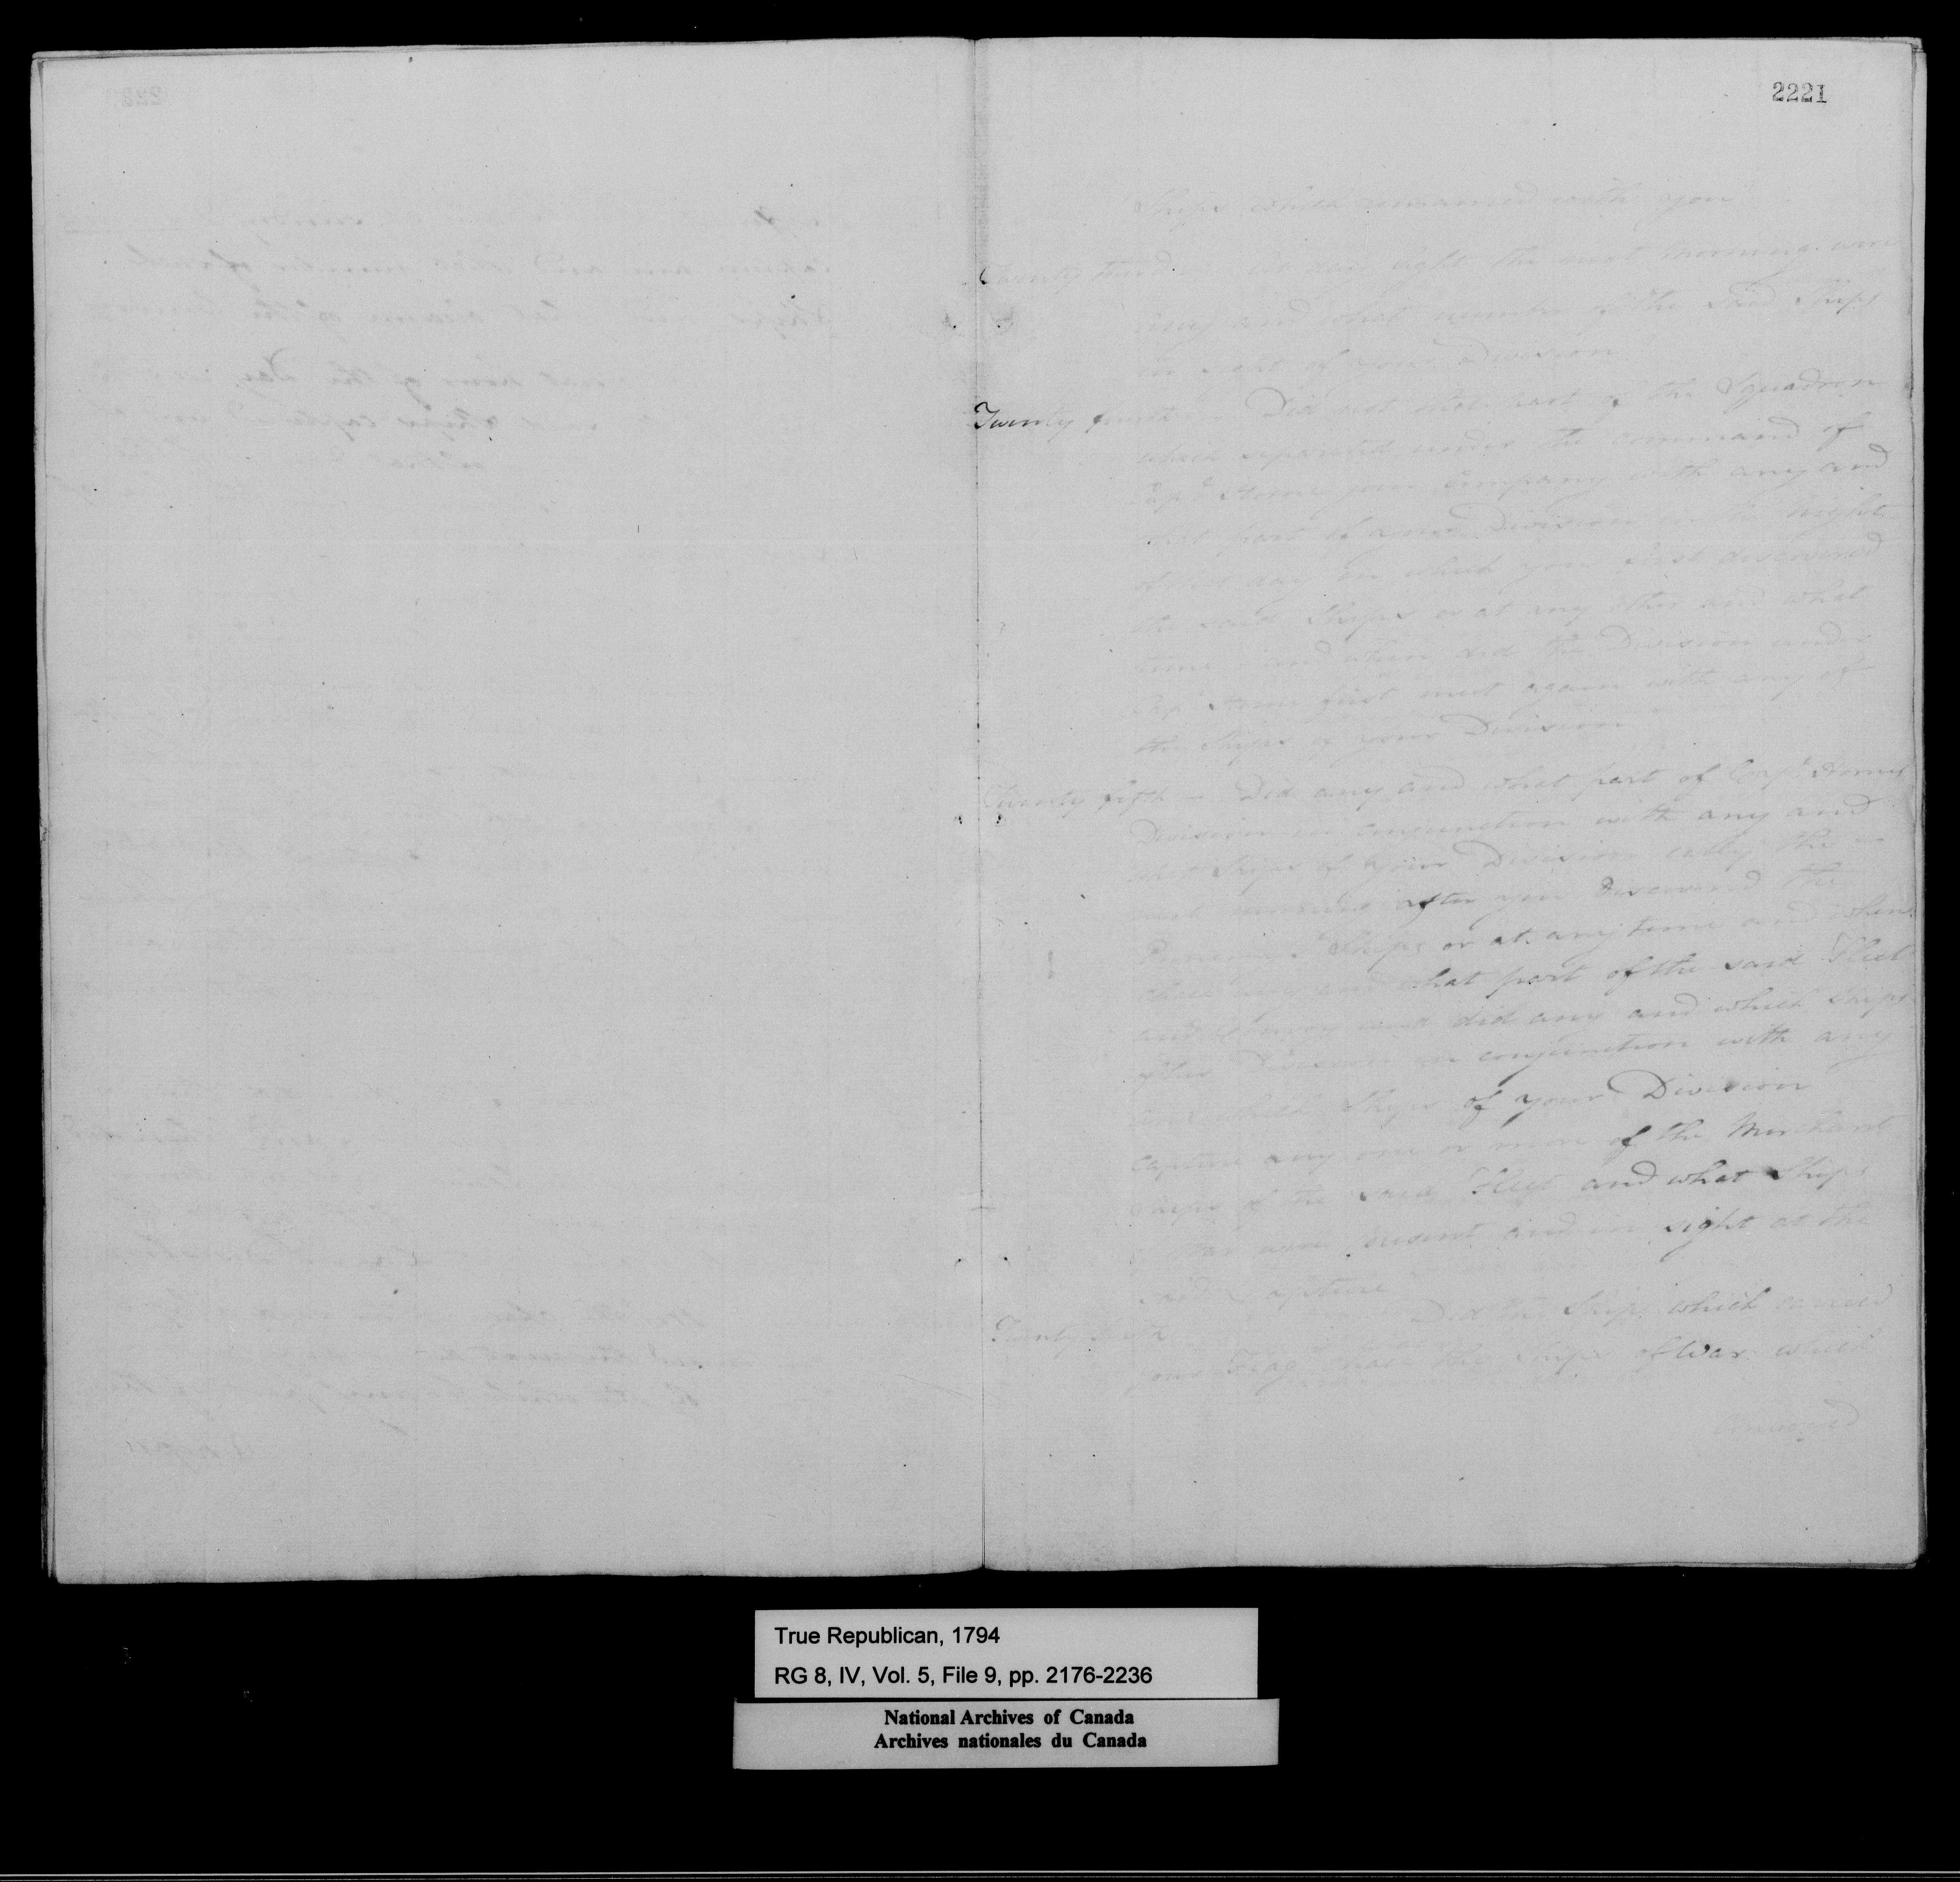 2221
Ships which remained with you
Twenty third — At day light the next Morning were
any and what number of the said Ships
in sight of your Division
Twenty fourth — Did not that part of the Squadron
which separated under the command of
Capt. Home join Company with any and
what part of your Division in the Night
of that day on which you first discovered
the said Ships or at any other and what
time and when did the Division under
Capt. Home first meet again with any of
the Ships of your Division
Twenty fifth — Did any and what part of Capt. Homes
Division in conjunction with any and
what Ships of your Division early the —
next morning after you discovered the
Ships or at any time and when
chase any and what part of the said Fleet
and Convoy and did any and which Ships
of his Division in conjunction with any
and which Ships of your Division
capture any one or more of the Merchant
Ships of the said Fleet and what Ships
of War were present and in sight at the
said Capture
Twenty Sixth Did the Ship which carried
your Flag chase the Ships of War which
convoyed
True Republican, 1794
RG 8, IV, Vol. 5, File 9, pp. 2176-2236
National Archives of Canada
Archives nationales du Canada